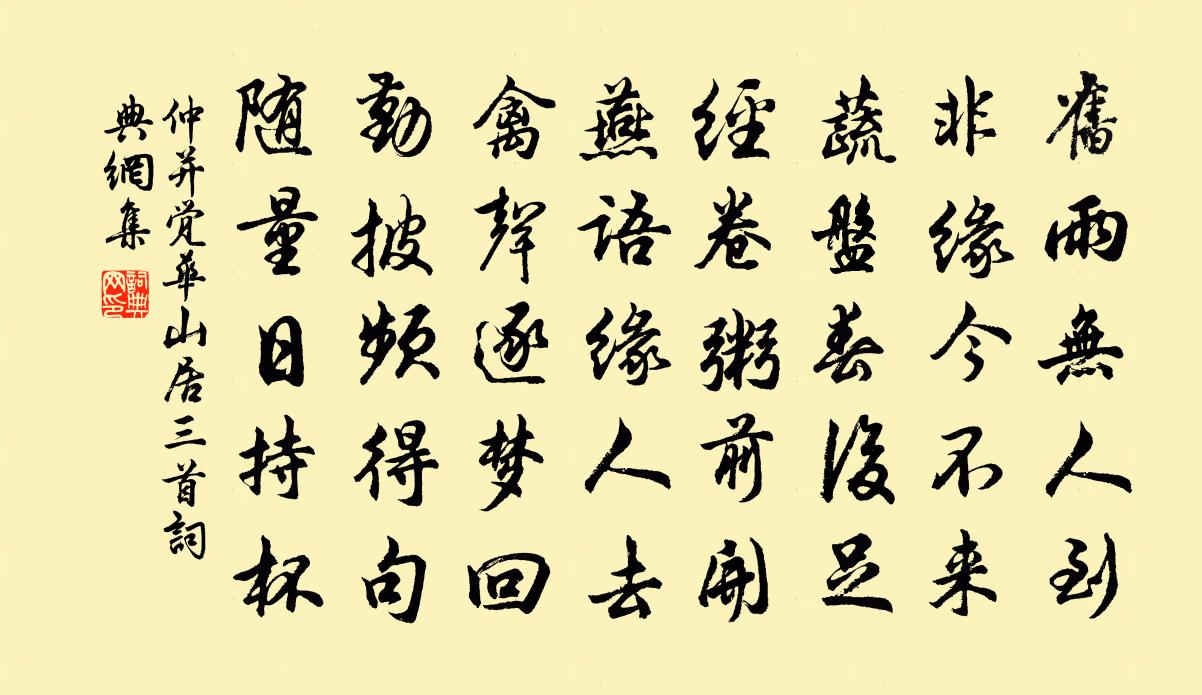 舊雨無人到
非緣今不来
蔬盤春後足
經卷粥前開
燕語緣人去
禽聲逐梦回
勤披頻得句
随量日持杯
仲并觉華山居三首詞
典網集
詞典网印